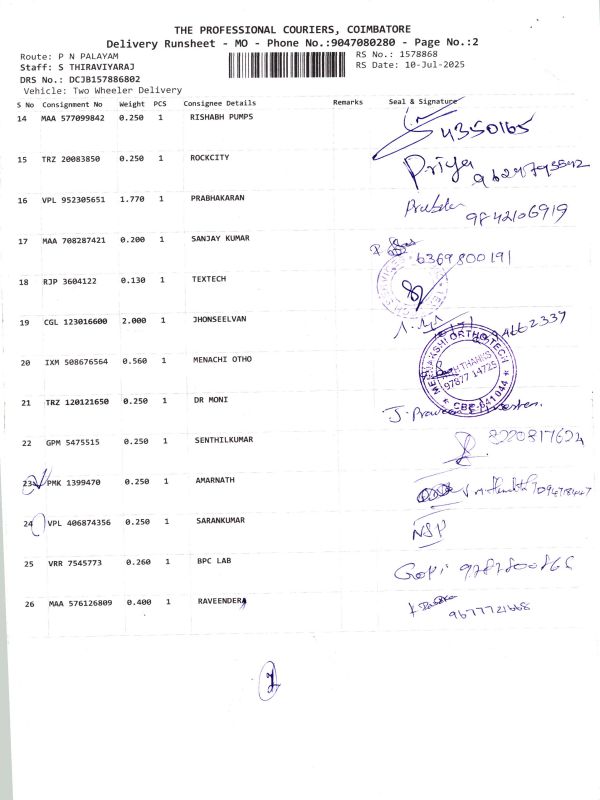 THE PROFESSIONAL COURIERS, COIMBATORE
Delivery Runsheet - MO - Phone No.:9047080280 - Page No.:2
Route: P N PALAYAM
RS No.: 1578868
Staff: S THIRAVIYARAJ
RS Date: 10-Jul-2025
DRS No.: DCJB157886802
Vehicle: Two Wheeler Delivery
S No Consignment No Weight PCS Consignee Details Remarks Seal & Signature
14 MAA 577099842 0.250 1 RISHABH PUMPS 4350165
15 TRZ 20083850 0.250 1 ROCKCITY Priya
16 VPL 952305651 1.770 1 PRABHAKARAN 9842106919
17 MAA 708287421 0.200 1 SANJAY KUMAR 6369800191
18 RJP 3604122 0.130 1 TEXTECH
19 CGL 123016600 2.000 1 JHONSEELVAN
20 IXM 508676564 0.560 1 MENACHI OTHO
MEENAKSHI ORTHO TECH
97877 14725
CBE-641 044
21 TRZ 120121650 0.250 1 DR MONI
22 GPM 5475515 0.250 1 SENTHILKUMAR 8220817624
23 PMK 1399470 0.250 1 AMARNATH
24 VPL 406874356 0.250 1 SARANKUMAR NSP
25 VRR 7545773 0.260 1 BPC LAB Gopi
26 MAA 576126809 0.400 1 RAVEENDERA 9677721668